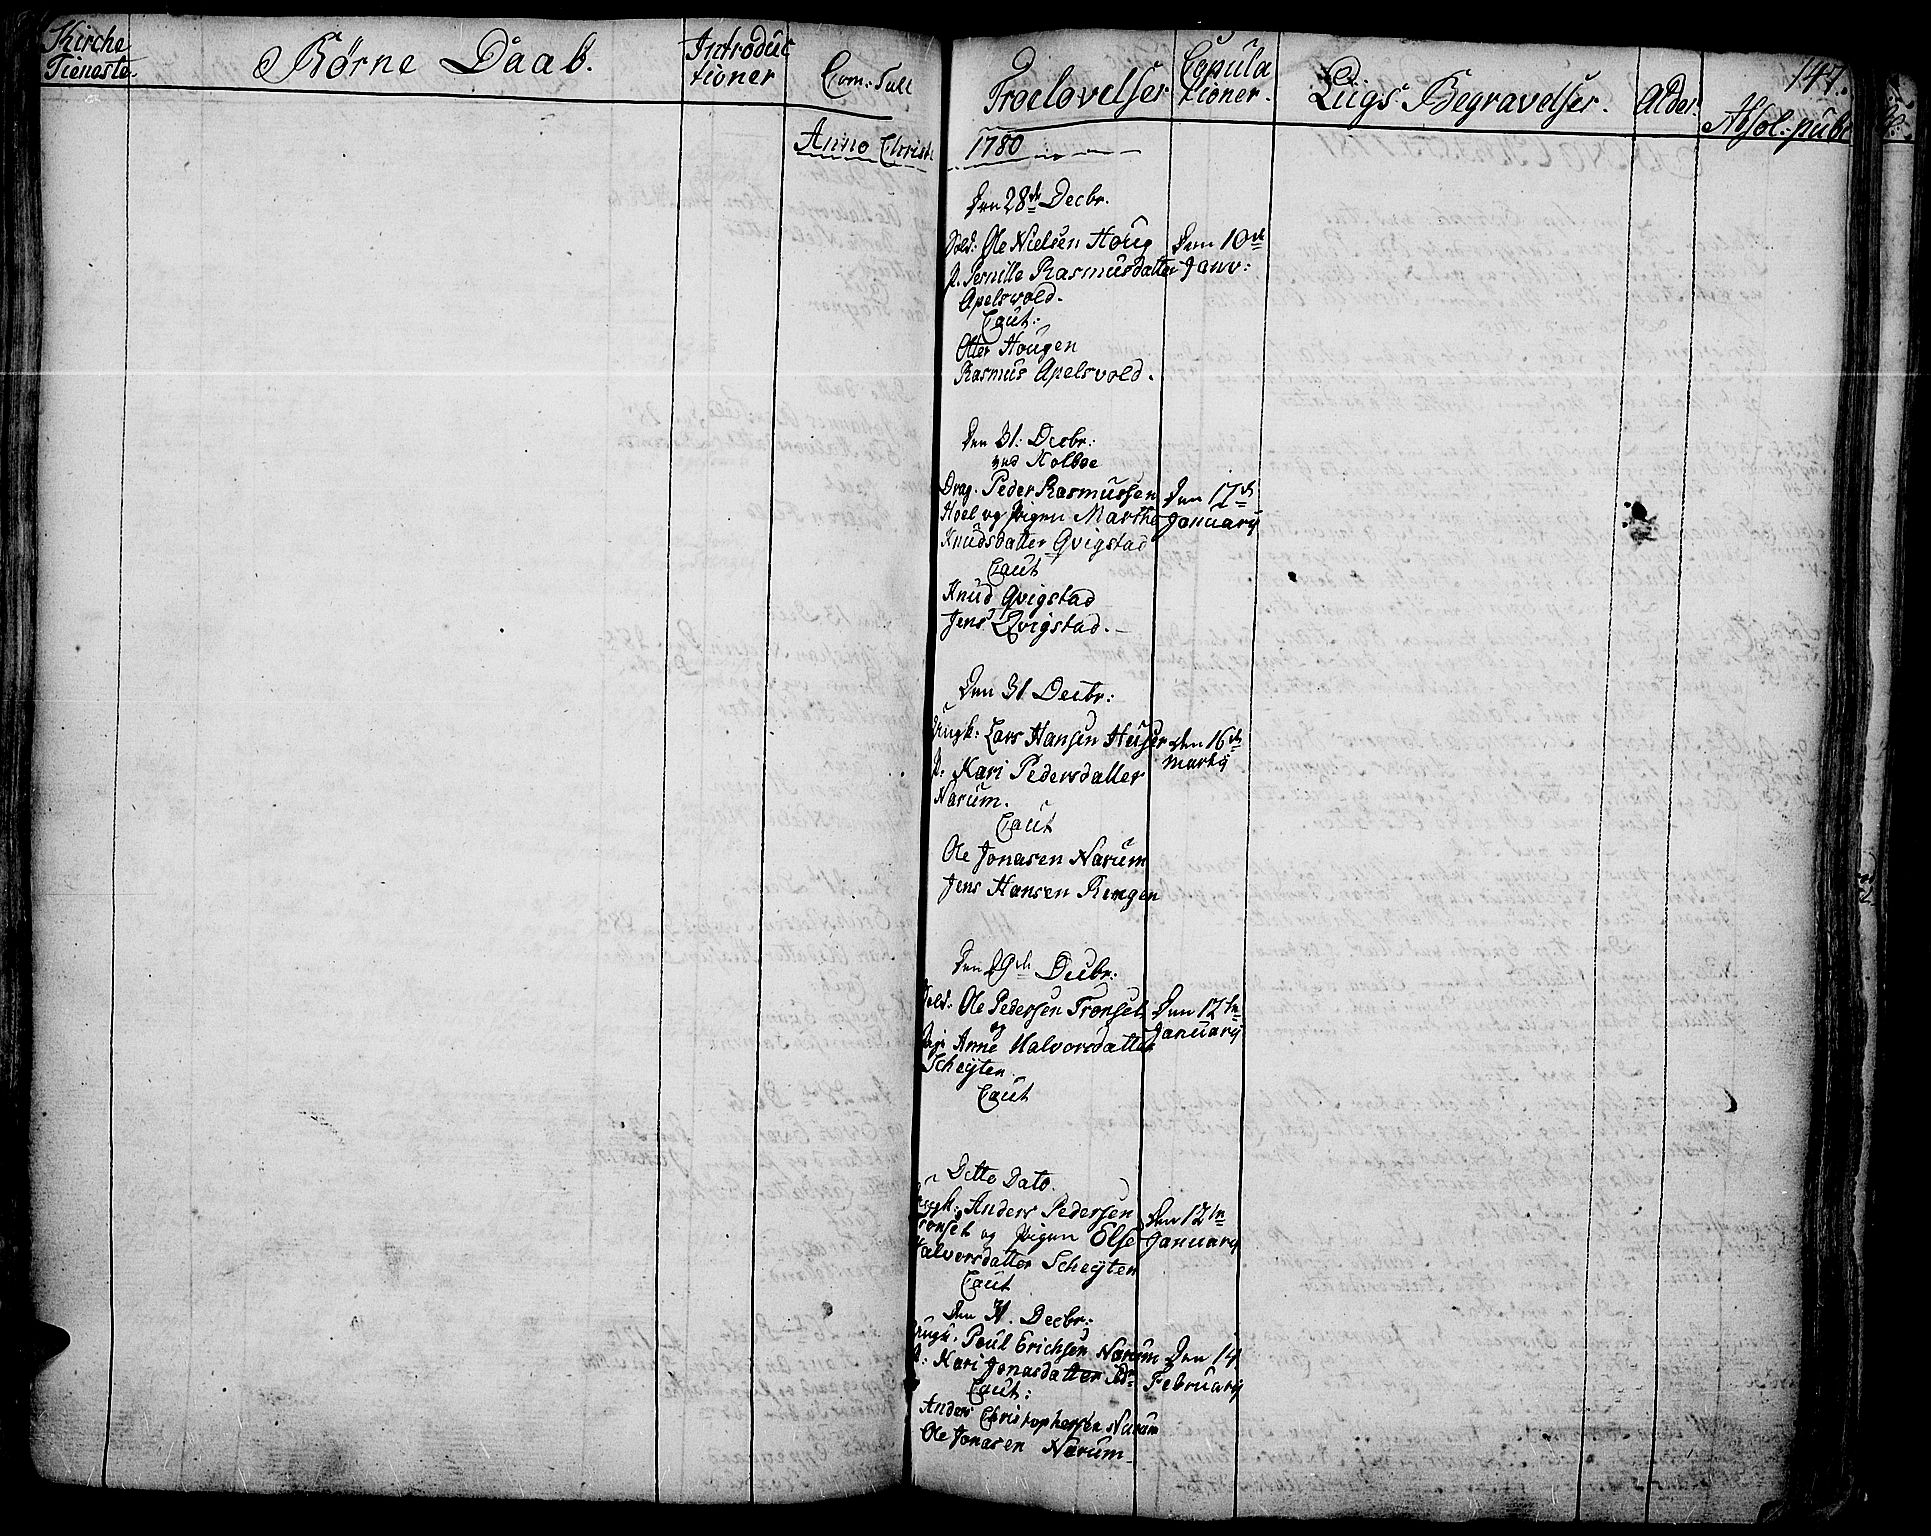 Kirche
Tieneste
Børne Daab.
Introduc
tioner
Com: Tall
Troelovelser
Copula
tioner.
Liigs Begravelser.
Alder
147.
Absol: publ
Anno Christi 1780
Den 28de Decbr.
Sold: Ole Nielsen Houg
P. Pernille Rasmusdatter
Apelsvold.
Caut:
Otter Hougen
Rasmus Apelsvold.
Den 10de
Janv:
Den 31: Decbr:
ved Kolboe
Drag. Peder Rasmussen
Hoel og Pigen Marthe
Knudsdatter Qvigstad
Caut
Knud Qvigstad
Jens Qvigstad.
Den 17de
January
Den 31 Decbr:
Ungk: Lars Hansen
P. Kari Pedersdatter
Narum.
Caut
Ole Jonasen Narum
Jens Hansen Remgen
Den 16de
Marty
Den 29de Decbr:
Sold: Ole Pedersen Tronset
og
Pig: Anne Halvorsdatter
Scheyten
Caut
Den 12te
January
Dette Dato.
Ungk: Anders Pedersen
Tronset og Pigen Else
Halvorsdatter Scheyten
Caut
Den 12te
January
Den 31. Decbr:
Ungk. Poul Erichsen Narum
P: Kari Jonasdatter
Caut:
Anders Christophersen Narum
Ole Jonasen Narum
Den 14
February